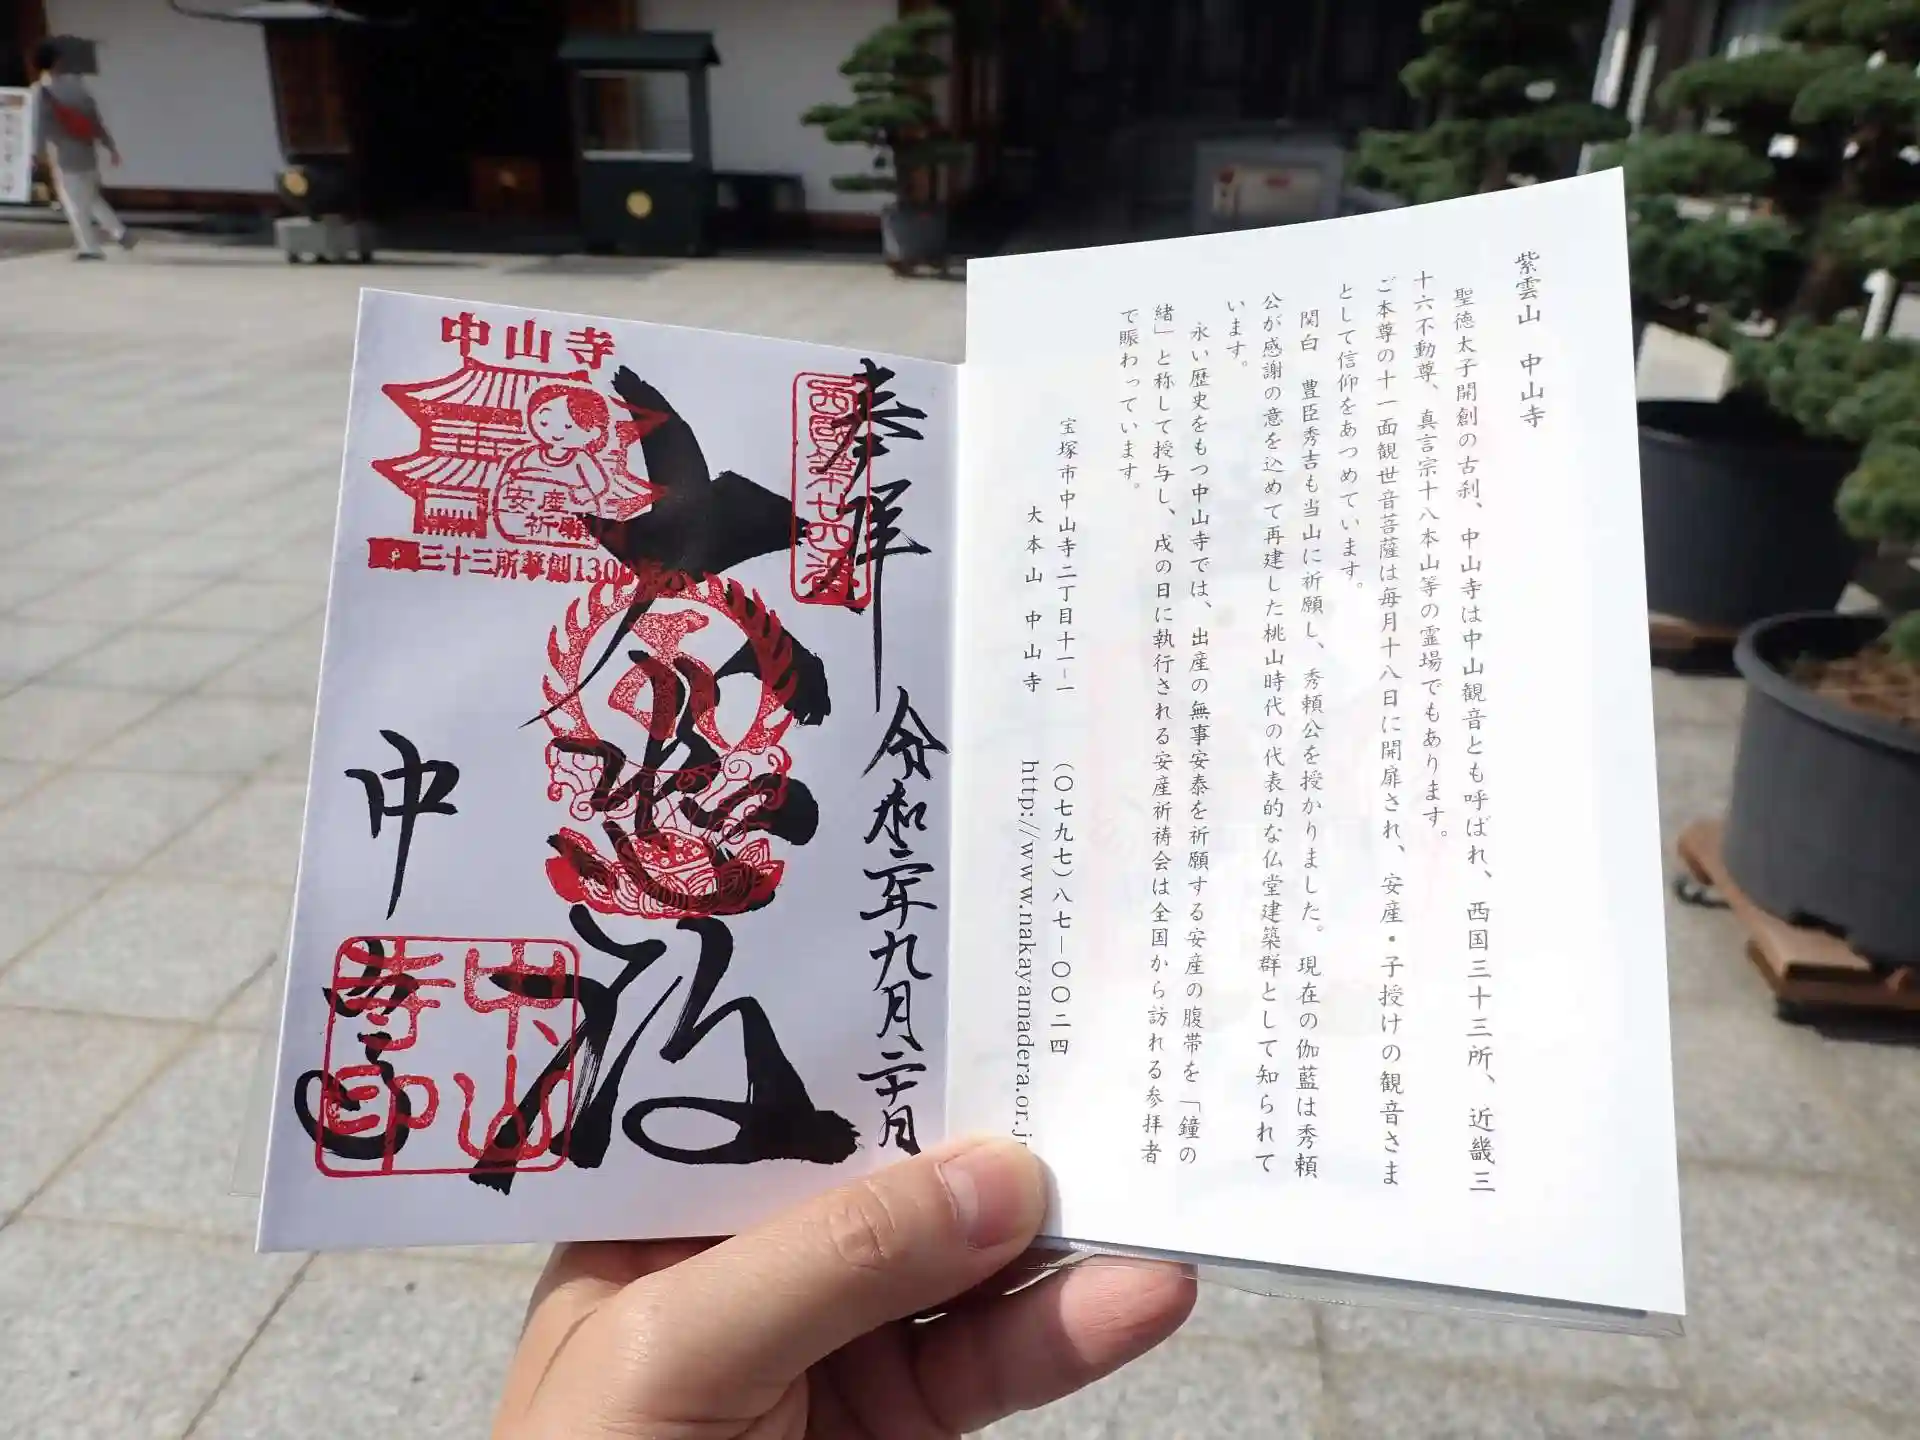 紫雲山　中山寺
聖徳太子開創の古刹、中山寺は中山観音とも呼ばれ、西国三十三所、近畿三
十六不動尊、真言宗十八本山等の霊場でもあります。
ご本尊の十一面観世音菩薩は毎月十八日に開扉され、安産・子授けの観音さま
として信仰をあつめています。
関白　豊臣秀吉も当山に祈願し、秀頼公を授かりました。現在の伽藍は秀頼
公が感謝の意を込めて再建した桃山時代の代表的な仏堂建築群として知られて
います。
永い歴史をもつ中山寺では、出産の無事安泰を祈願する安産の腹帯を「鐘の
緒」と称して授与し、戌の日に執行される安産祈祷会は全国から訪れる参拝者
で賑わっています。
宝塚市中山寺二丁目十一−一　（〇七九七）八七－〇〇二四
大本山　中山寺　http://www.nakayamadera.or.j
奉拝
西国第廿四番
令和二年九月二十日
大悲殿
中山寺
安産
祈願
三十三所草創1300
中山寺
中山寺印